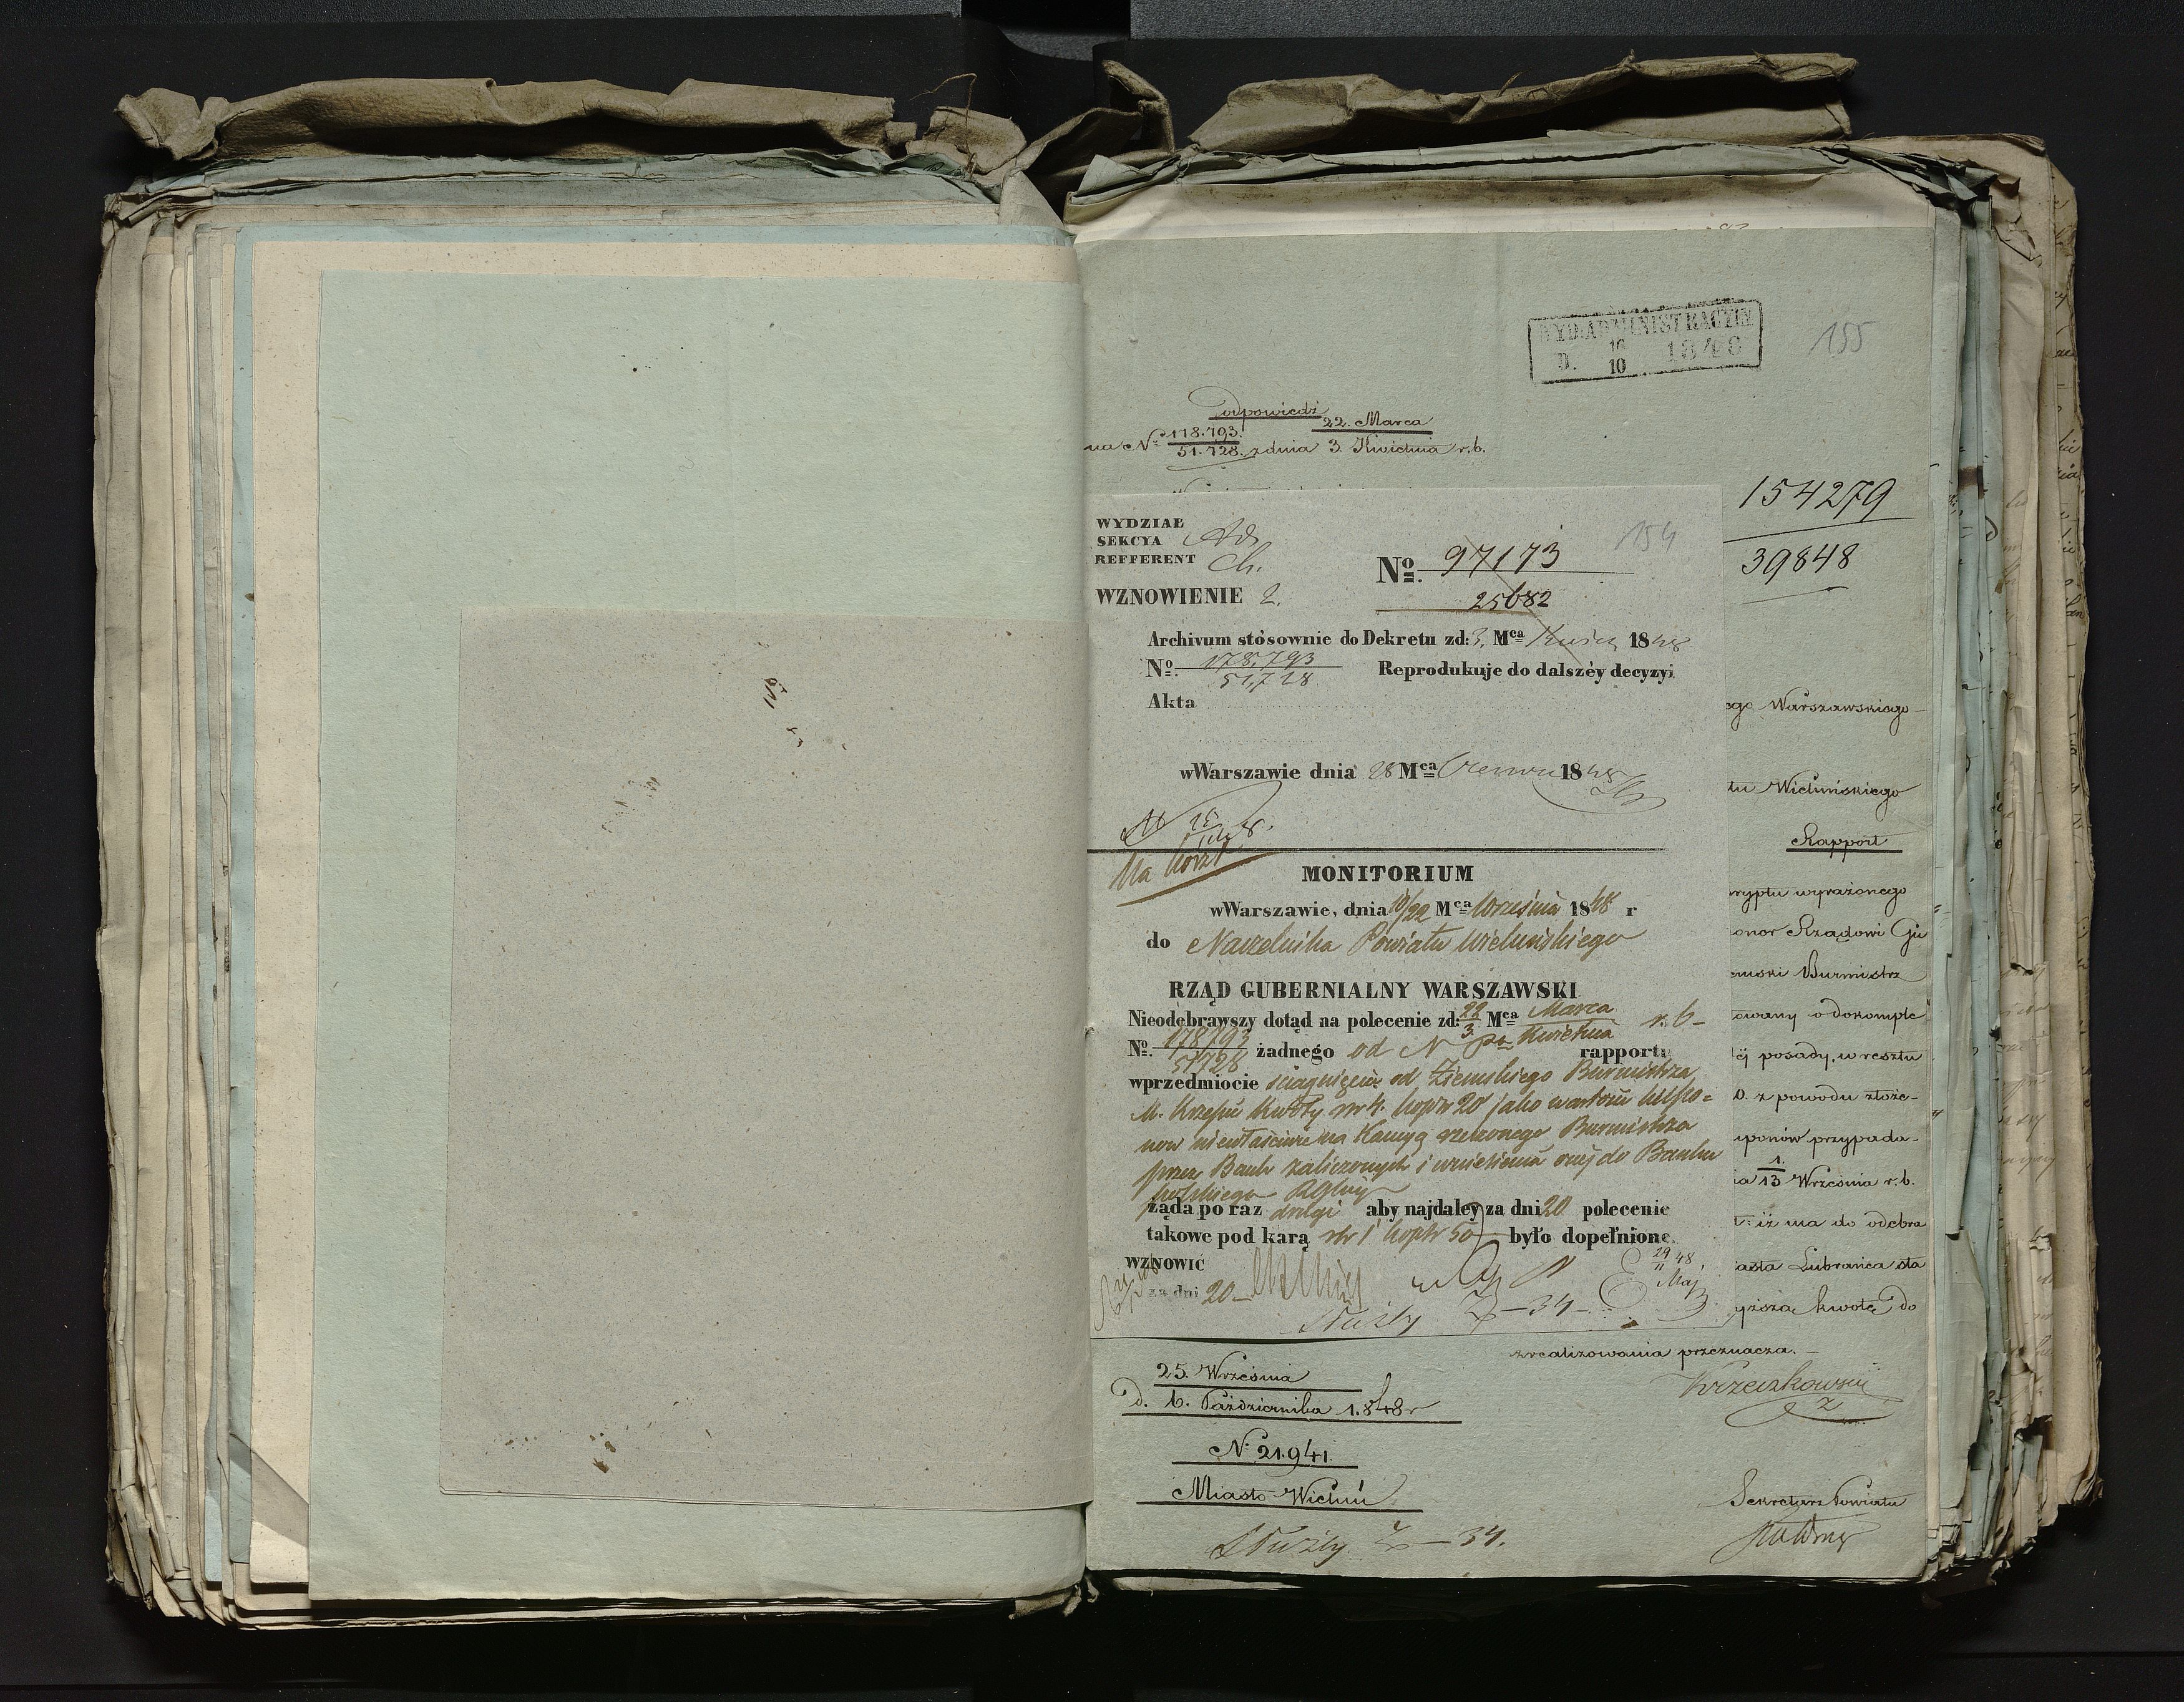 WYD. ADMINISTRACYJN
D. 16/10 1848
155
Odpowiedź
na N. 178.793./51.728. z dnia 22. Marca/3 Kwietnia r.b.
154279
39848
WYDZIAŁ Ad
SEKCYA
REFFERENT Ch.
154
No. 97173
25682
WZNOWIENIE 2.
Archivum stósownie do Dekretu zd: 3. Mca Kwiet 1848
No. 178.793/51,728 Reprodukuje do dalszéy decyzyi
Akta
ego Warszawskiego
wWarszawie dnia 28 Mca Czerwca 1848
tu Wieluńskiego
Rapport
MONITORIUM
wWarszawie, dnia 10/22 Mca Września 1848 r
do Naczelnika Powiatu Wieluńskiego
RZĄD GUBERNIALNY WARSZAWSKI
Nieodebrawszy dotąd na polecenie zd: 22/3 Mca Marca/Kwietnia r. b.
No. 178793/51728 żadnego od N rapportu
wprzedmiocie ściągnięcia od Ziemskiego Burmistrza
M. Krzepic Kwoty rsr 4. kop 20 jako wartości kupo=
now niewłaściwie na Kaucyą rzeczonego Burmistrza
przez Bank zaliczonych i wniesienia onej do Banku
Polskiego
żąda po raz drugi aby najdaley za dni 20 polecenie
takowe pod karą rsr 1 kop 50 było dopełnione
WZNOWIĆ
za dni 20
34
ryptu wyrażonego
onor Rządowi Gu
emski Burmistrz
towany o dokomple
éj posady, w resztu
z powodu złożo-
uponów przypada-
ia 1/13 Września r.b.
iż ma do odebra
iasta Lubrańca sta
yższą kwotę do
zrealizowania przeznacza.
Krzeczkowski
25. Września
d. 6. Października 1.848 r
N. 21.941.
Miasto Wieluń
34.
Sekretarz Powiatu